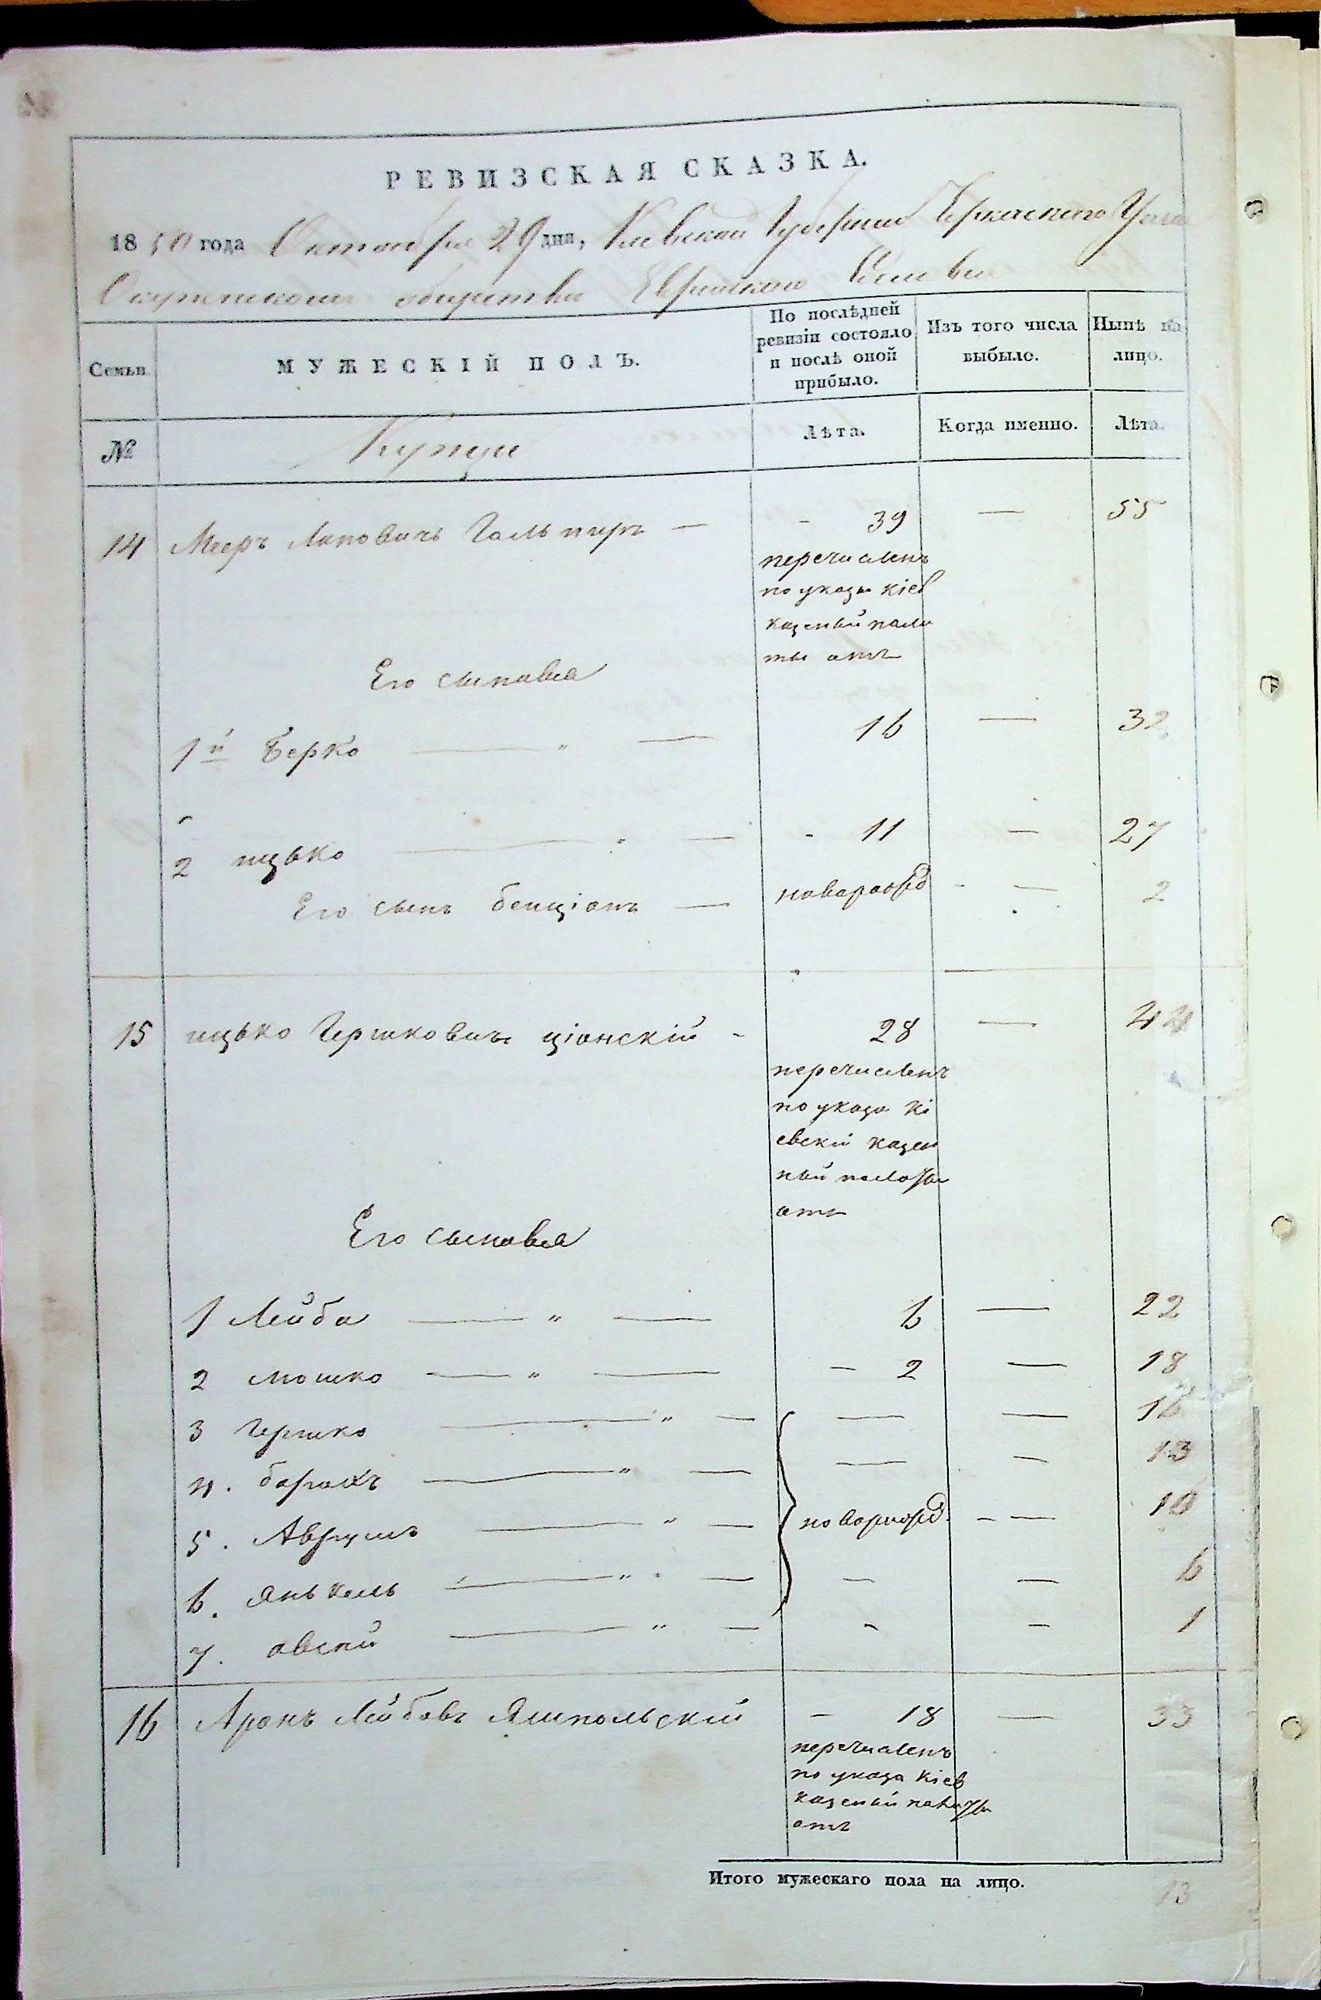 РЕВИЗСКАЯ СКАЗКА.
1850 года Октября 29 дня, Киевской Губернии Черкаского Уезда
общества Еврейского
Семьи. МУЖЕСКІЙ ПОЛЪ. По послѣдней ревизіи состояло и послѣ оной прибыло. Изъ того числа выбыло. Нынѣ на лицо.
№ Купци Лѣта. Когда именно. Лѣта.
14 Мееръ Гальпиръ — - 39 — 55
перечисленъ
по указу Кіев
казеный пала
ты отъ
Его сыновья
1й Берко — " — 16 — 32
2 ицько — " — - 11 — 27
Его сынъ бенціонъ — новорожд - — 2
15 ицько Гершковичъ ціонскій - 28 — 44
перечисленъ
по указа Кі
евскй казен
ный палаты
отъ
Его сыновья
1 Лейба — " — 6 — 22
2 мошко — " — — 2 — 18
3 Гершко — " — — — 16
4. борохъ — " — — — 13
5. Аврумъ — " — новорожд. - — 10
6. Янькель — " — — — 6
7. овсей — " — - - 1
16 Аронъ Лейбовъ Ямпольскій — 18 — 33
перечисленъ
по указа Кіев
казеный палаты
отъ
Итого мужескаго пола на лицо. 13